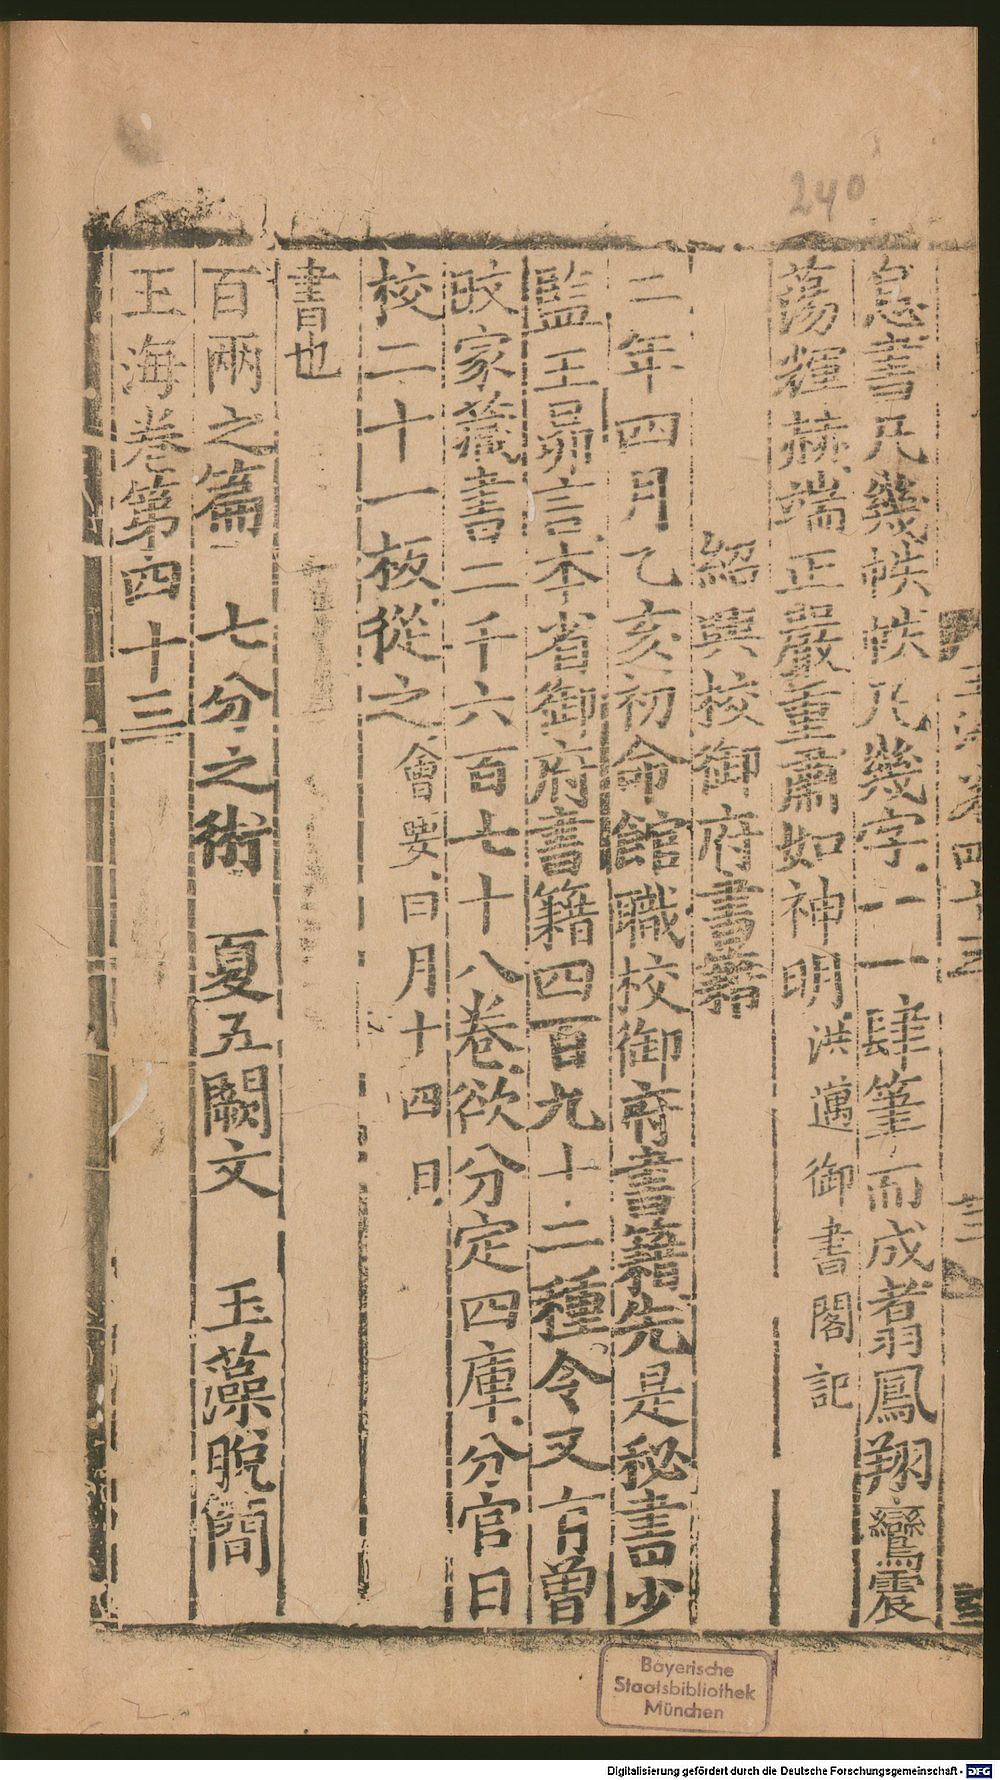 240
急書凡幾帙帙凡幾字一一肆筆而成者翥鳳翔鸞震
蕩輝赫端正嚴重肅如神明洪邁御書閣記
紹興校御府書籍
二年四月乙亥初命館職校御府書籍先是秘書少
監王昴言本省御府書籍四百九十二種令又有曽
旼家藏書二千六百七十八卷欲分定四庫分官日
校二十一板從之會要曰月十四日
書也
百兩之篇 七分之術 夏五闕文 玉藻脫簡
玉海卷第四十三
Bayerische
Staatsbibliothek
München
Digitalisierung gefördert durch die Deutsche Forschungsgemeinschaft - DFG